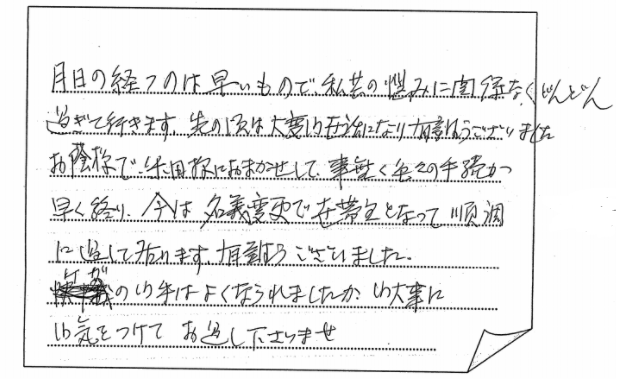 月日の経つのは早いもので、私共の悩みに関係なくどんどん
過ぎて行きます。先の頃は大変お世話になり有難うございました
お蔭様で 様におまかせして、事無く色々の手続が
早く終り、今は名義変更で世帯主となって順調
に過して居ります。有難うございました。
ケガのお手はよくなられましたか、お大事に
お気をつけてお過し下さいませ